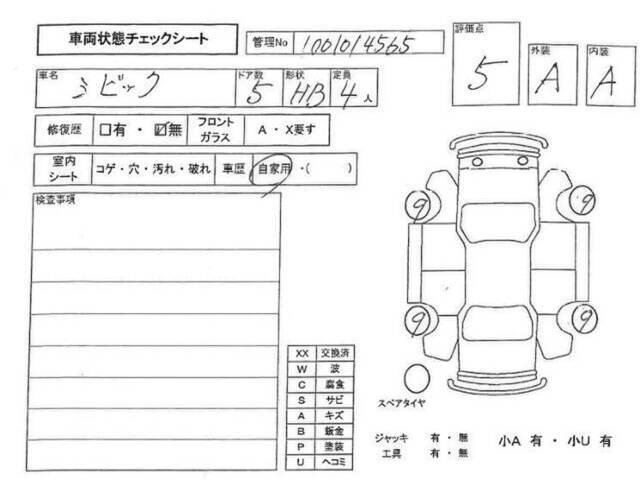 車両状態チェックシート
管理No 1001014565
評価点 5
外装 A
内装 A
車名 シビック ドア数 5 形状 HB 定員 4人
修復歴 □有・☑無 フロントガラス A・X要す
室内シート コゲ・穴・汚れ・破れ 車歴 自家用・( )
検査事項
9 9
9 9
XX 交換済
W 波
C 腐食
S サビ
A キズ
B 鈑金
P 塗装
U ヘコミ
スペアタイヤ
ジャッキ 有・無
工具 有・無
小A 有・小U 有